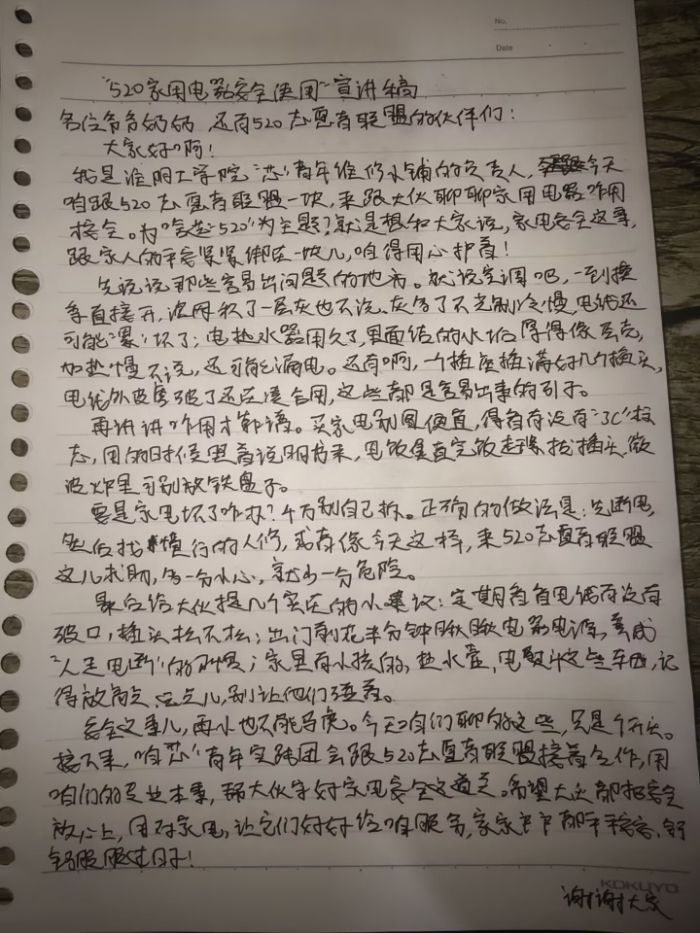 No.
Date
"520家用电器安全使用"宣讲稿
各位爷爷奶奶，还有520志愿者联盟的伙伴们：
大家好啊！
我是淮阴工学院"芯"青年维修小铺的负责人，今天
咱跟520志愿者联盟一块，来跟大伙聊聊家用电器咋用
安全。为啥选"520"为主题？就是想和大家说，家电安全这事，
跟家人的平安紧紧绑在一块儿，咱得用心护着！
先说说那些容易出问题的地方。就说空调吧，一到换
季直接开，滤网积了一层灰也不洗，灰多了不光制冷慢，电线还
可能"累"坏了；电热水器用久了，里面结的水垢厚得像蛋壳，
加热慢不说，还可能漏电。还有啊，一个插座插满好几个插头，
电线外皮磨破了还在凑合用，这些都是容易出事的引子。
再讲讲咋用才靠谱。买家电别图便宜，得看有没有"3C"标
志，用的时候照着说明书来，电饭煲煮完饭赶紧拔插头，微
波炉里可别放铁盘子。
要是家电坏了咋办？千万别自己拆。正确的做法是：先断电，
然后找懂行的人修，或者像今天这样，来520志愿者联盟
这儿求助，多一分小心，就少一分危险。
最后给大伙提几个实在的小建议：定期看看电线有没有
破口，插头松不松；出门前花半分钟瞅瞅电器电源，养成
"人走电断"的习惯；家里有小孩的，热水壶，电熨斗这些东西，记
得放高点、远点儿，别让他们碰着。
安全这事儿，再小也不能马虎。今天咱们聊的这些，只是个开头。
接下来，咱"芯"青年实践团会跟520志愿者联盟接着合作，用
咱们的专业本事，帮大伙守好家电安全这道关。希望大家都把安全
放心上，用对家电，让它们好好给咱服务，家家户户都平平安安，舒
舒服服过日子！
KOKUYO
谢谢大家